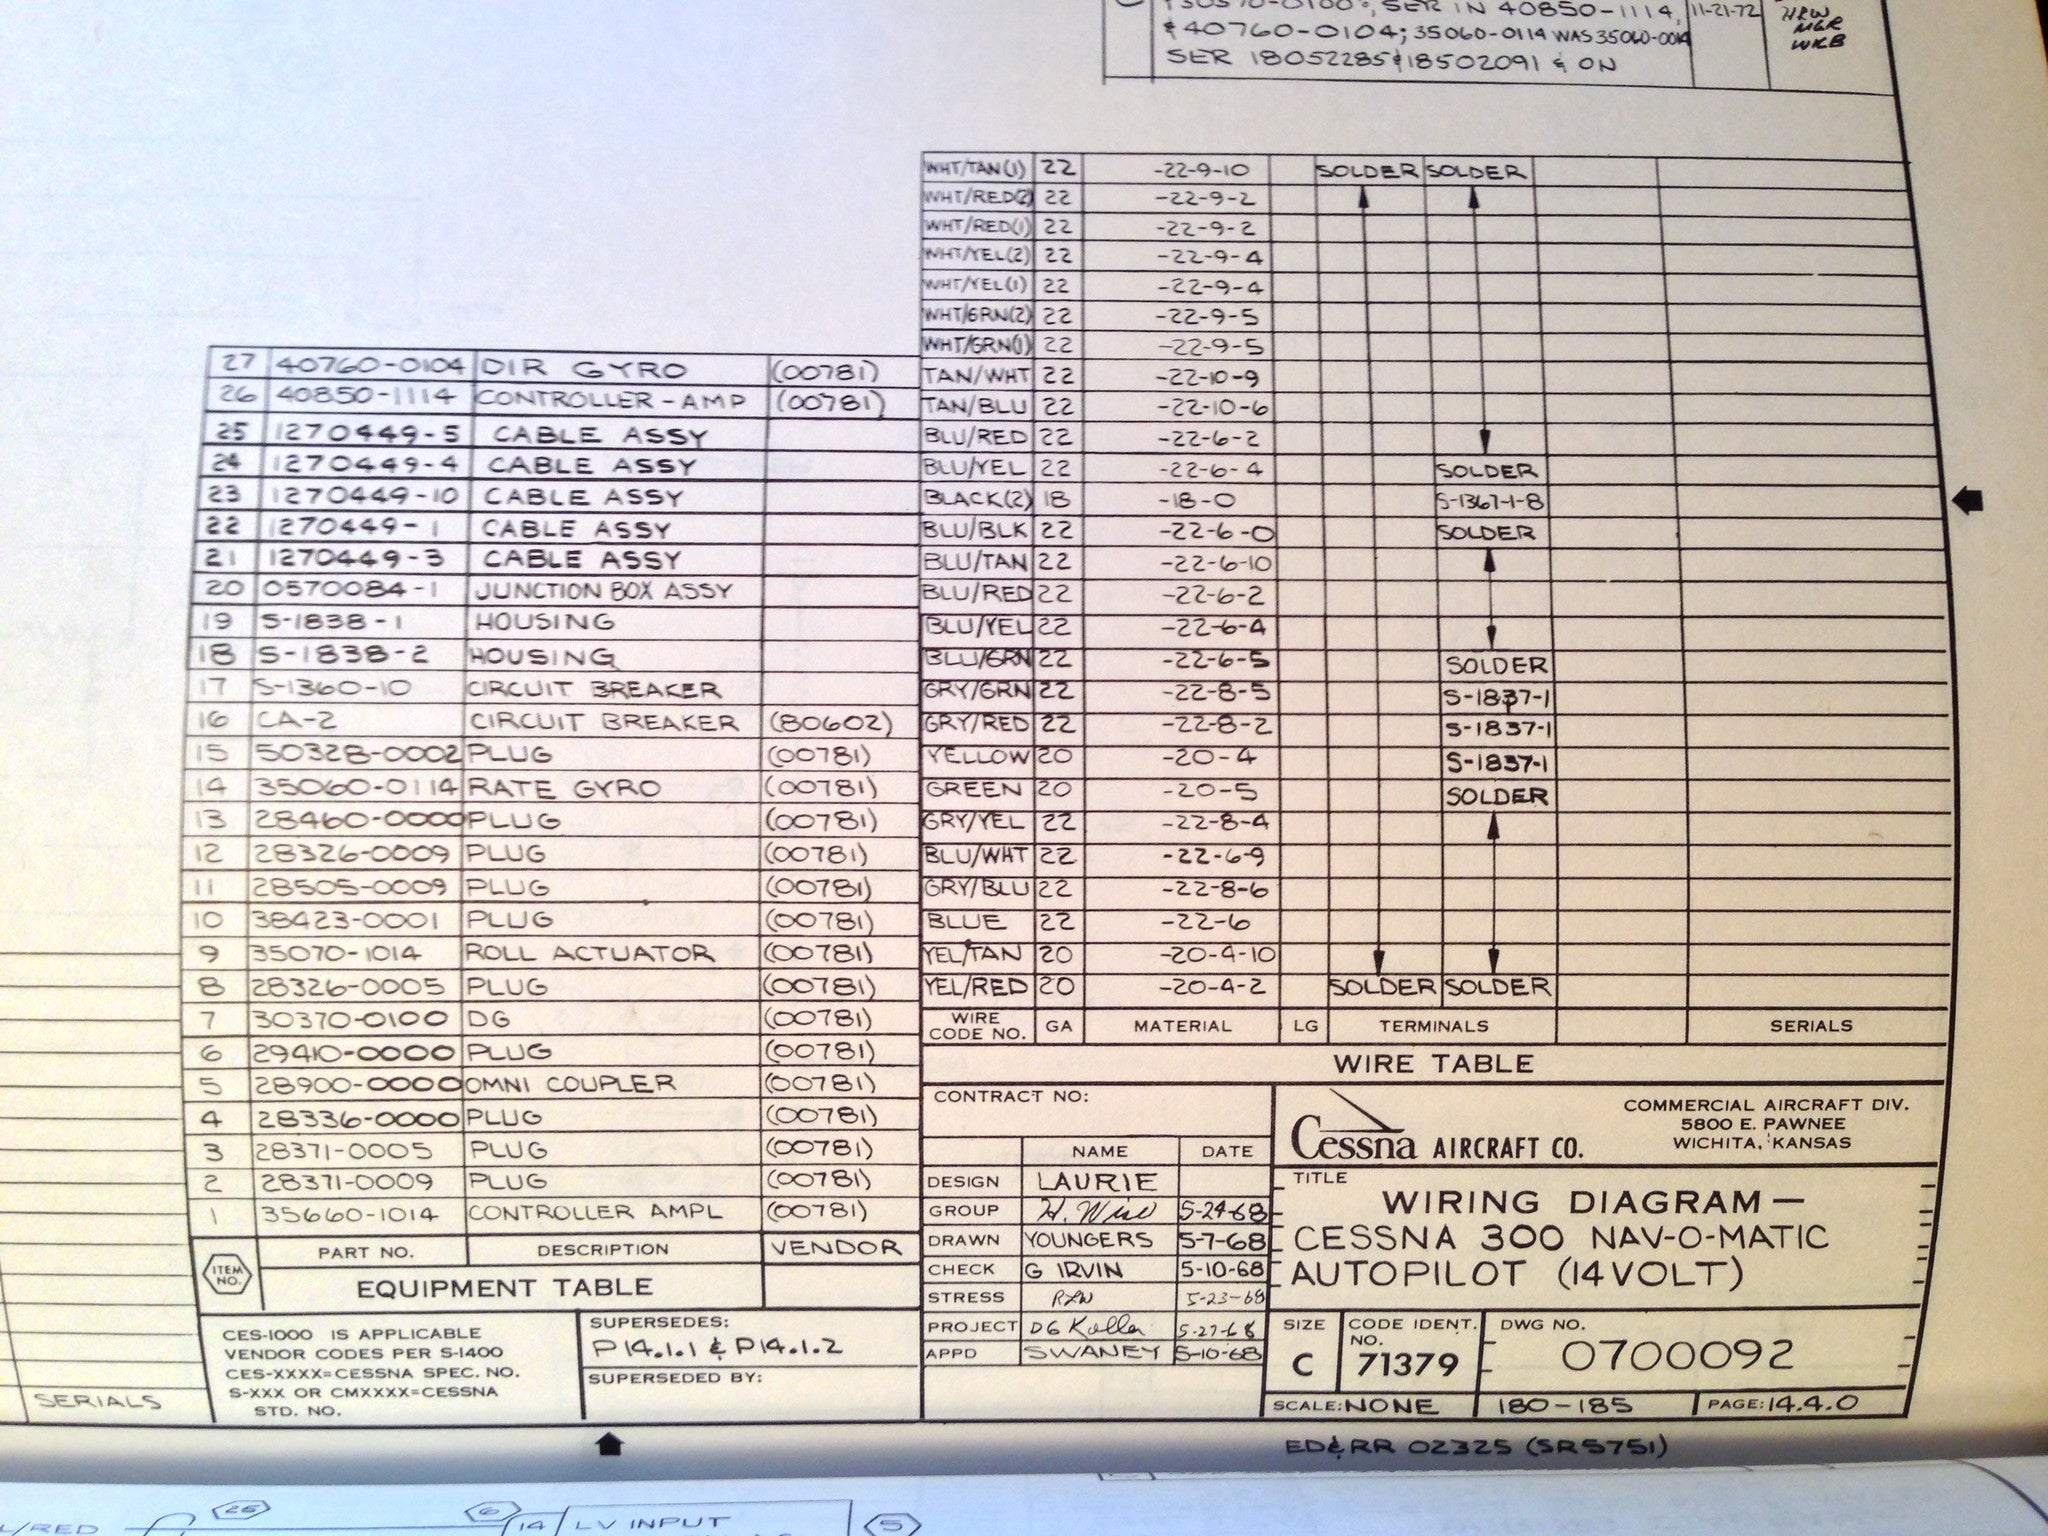 SER IN 40850-1114, 11-21-72 HRW
& 40760-0104; 35060-0114 WAS 35060-0014 MGR
SER 18052285 & 18502091 & ON WKB
WHT/TAN(1) 22 -22-9-10 SOLDER SOLDER
WHT/RED(2) 22 -22-9-2
WHT/RED(1) 22 -22-9-2
WHT/YEL(2) 22 -22-9-4
WHT/YEL(1) 22 -22-9-4
WHT/GRN(2) 22 -22-9-5
WHT/GRN(1) 22 -22-9-5
TAN/WHT 22 -22-10-9
TAN/BLU 22 -22-10-6
BLU/RED 22 -22-6-2
BLU/YEL 22 -22-6-4 SOLDER
BLACK(2) 18 -18-0 S-1367-1-8
BLU/BLK 22 -22-6-0 SOLDER
BLU/TAN 22 -22-6-10
BLU/RED 22 -22-6-2
BLU/YEL 22 -22-6-4
BLU/GRN 22 -22-6-5 SOLDER
GRY/GRN 22 -22-8-5 S-1837-1
GRY/RED 22 -22-8-2 S-1837-1
YELLOW 20 -20-4 S-1837-1
GREEN 20 -20-5 SOLDER
GRY/YEL 22 -22-8-4
BLU/WHT 22 -22-6-9
GRY/BLU 22 -22-8-6
BLUE 22 -22-6
YEL/TAN 20 -20-4-10
YEL/RED 20 -20-4-2 SOLDER SOLDER
WIRE CODE NO. GA MATERIAL LG TERMINALS SERIALS
WIRE TABLE
27 40760-0104 DIR GYRO (00781)
26 40850-1114 CONTROLLER-AMP (00781)
25 1270449-5 CABLE ASSY
24 1270449-4 CABLE ASSY
23 1270449-10 CABLE ASSY
22 1270449-1 CABLE ASSY
21 1270449-3 CABLE ASSY
20 0570084-1 JUNCTION BOX ASSY
19 S-1838-1 HOUSING
18 S-1838-2 HOUSING
17 S-1360-10 CIRCUIT BREAKER
16 CA-2 CIRCUIT BREAKER (80602)
15 50328-0002 PLUG (00781)
14 35060-0114 RATE GYRO (00781)
13 28460-0000 PLUG (00781)
12 28326-0009 PLUG (00781)
11 28505-0009 PLUG (00781)
10 38423-0001 PLUG (00781)
9 35070-1014 ROLL ACTUATOR (00781)
8 28326-0005 PLUG (00781)
7 30370-0100 DG (00781)
6 29410-0000 PLUG (00781)
5 28900-0000 OMNI COUPLER (00781)
4 28336-0000 PLUG (00781)
3 28371-0005 PLUG (00781)
2 28371-0009 PLUG (00781)
1 35660-1014 CONTROLLER AMPL (00781)
ITEM NO. PART NO. DESCRIPTION VENDOR
EQUIPMENT TABLE
CES-1000 IS APPLICABLE
VENDOR CODES PER S-1400
CES-XXXX=CESSNA SPEC. NO.
S-XXX OR CMXXXX=CESSNA
STD. NO.
SERIALS
SUPERSEDES:
P14.1.1 & P14.1.2
SUPERSEDED BY:
CONTRACT NO:
NAME DATE
DESIGN LAURIE
GROUP H. Wise 5-24-68
DRAWN YOUNGERS 5-7-68
CHECK G IRVIN 5-10-68
STRESS 5-23-68
PROJECT DG 5-27-68
APPD SWANEY 5-10-68
Cessna AIRCRAFT CO.
COMMERCIAL AIRCRAFT DIV.
5800 E. PAWNEE
WICHITA, KANSAS
TITLE
WIRING DIAGRAM—
CESSNA 300 NAV-O-MATIC
AUTOPILOT (14VOLT)
SIZE C
CODE IDENT. NO. 71379
DWG NO. 0700092
SCALE: NONE 180-185 PAGE: 14.4.0
ED&RR 02325 (SR5751)
/RED 25 6 14 LV INPUT 5